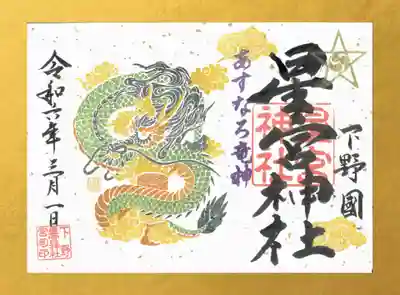 下野國
星宮神社
星宮
神社
あすなろ竜神
令和六年三月一日